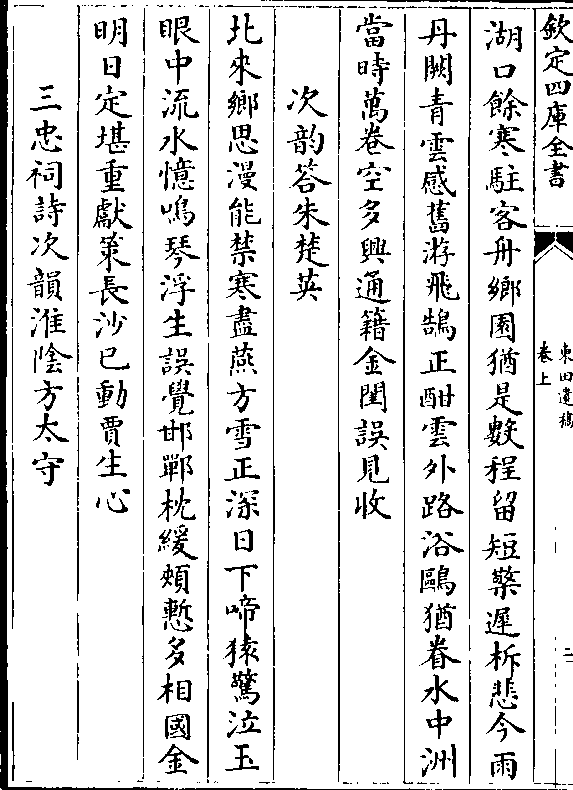 欽定四庫全書
東田遺稿
卷上
二
湖口餘寒駐客舟鄉園猶是數程留短檠遲柝悲今雨
丹闕青雲感舊游飛鵠正酣雲外路浴鷗猶眷水中洲
當時萬卷空多興通籍金閨誤見收
次韵答朱楚英
北來鄉思漫能禁寒盡燕方雪正深日下啼猿驚泣玉
眼中流水憶鳴琴浮生誤覺邯鄲枕緩頰慙多相國金
明日定堪重獻策長沙已動賈生心
三忠祠詩次韻淮陰方太守